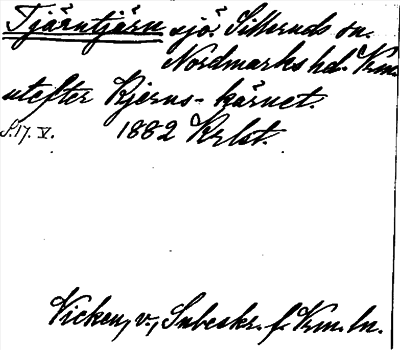 Tjärntjärn sjö i Silleruds sn.
Nordmarks hd. Krm.
utefter Kjerns-kärnet.
S.17.V. 1882 Krbt.
Vicken, v., Snbeskr. f. Krm. ln.